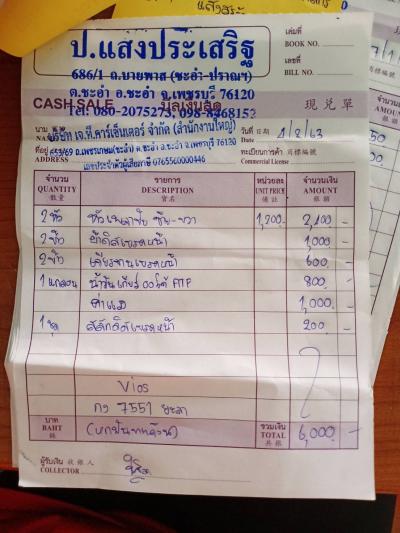 ป.แสงประเสริฐ
686/1 ถ.บายพาส (ชะอำ-ปราณฯ)
ต.ชะอำ อ.ชะอำ จ.เพชรบุรี 76120
Tel: 080-2075273, 098-8468152
เล่มที่
BOOK NO.
เลขที่
BILL NO.
CASH SALE บิลเงินสด 現兌單
นาม
บริษัท เจ.ที.คาร์เซ็นเตอร์ จำกัด (สำนักงานใหญ่)
วันที่ 日期 1/8/63
Date
ที่อยู่
ADDRESS
เลขประจำตัวผู้เสียภาษี 0765560000446
ทะเบียนการค้า 商標編號
Commercial License
จำนวน รายการ หน่วยละ จำนวนเงิน
QUANTITY DESCRIPTION UNIT PRICE AMOUNT
數量 貨名 備註 銀額
2 หัว หัวเพลาขับ ซ้าย-ขวา 2,400 -
ผ้าดิสเบรคหน้า 1,000 -
เจียรจานเบรคหน้า 600 -
1 แกลลอน น้ำมันเกียร์ออโต้ ATF 800 -
ค่าแรง 1,000 -
1 ชุด สลักดิสเบรคหน้า 200 -
Vios
กง 7551 ยะลา
บาท (หกพันบาทถ้วน) รวมเงิน 6,000 -
BAHT TOTAL
銖 共銀
ผู้รับเงิน 收銀人
COLLECTOR